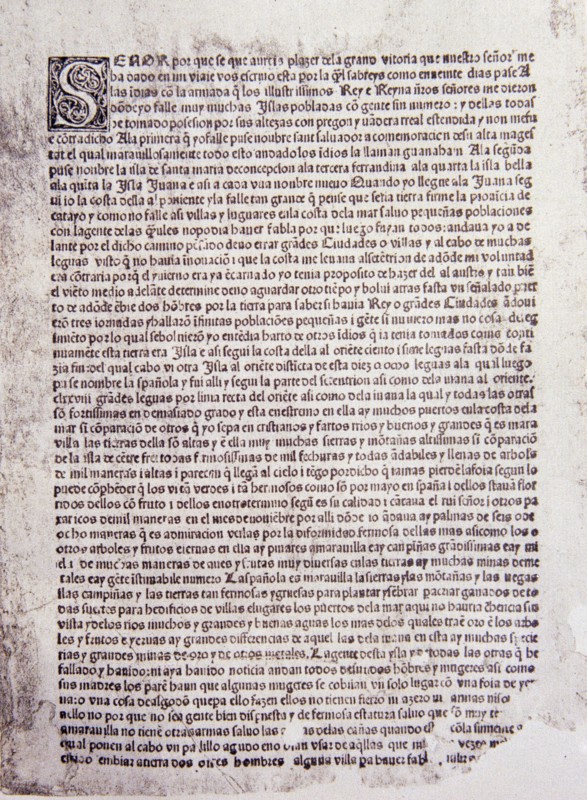 SEÑOR por que se que aureis plazer dela grand vitoria que nuestro señor me
ha dado en mi viaje vos escriuo esta por la q̄l sabreys como en veinte dias pase A
las jdias cō la armada q̄ los illustrissimos Rey e Reyna ñros señores me dieron
dōde yo falle muy muchas Jslas pobladas cō gente sin numero: y dellas todas
he tomado posesion por sus altezas con pregon y uādera real estendida y non me fu
e cōtradicho Ala primera q̄ yo falle puse noubre sant saluador a comemoracion desu alta mages
tat el qual marauillosamente todo esto a andado los jdios la llaman guanahan Ala segūda
puse nonbre la isla de santa maria deconcepcion ala tercera ferrandina ala quarta la isla bella
ala quīta la Jsla Juana e asi a cada vna nonbre nueuo Quando yo llegue ala Juana seg
ui io la costa della al poniente yla falle tan grande q̄ pense que seria tierra firme la prouicia de
catayo y como no falle asi villas y luguares enla costa dela mar saluo pequeñas poblaciones
con lagente delas q̄les nopodia hauer fabla por que luego fuyan todos: andaua yo a de
lante por el dicho camino pēsādo deuo errar grādes Ciudades o villas y al cabo de muchas
leguas visto q̄ no hauia inouacion i que la costa me leuaua alsetētrion de adōde mi voluntad
era cōtraria porq̄ el yuierno era ya ēcarnado yo tenia proposito dehazer del al austro y tan biē
el viēto medio adelāte determine deno aguardar otro tiēpo y bolui atras fasta vn señalado puer
to de adōde ēbie dos hōbres por la tierra para saber si hauia Rey o grādes Ciudades ādoui
erō tres iornadas yhallarō īfinitas poblaciōes pequeñas i gēte si numero mas no cosa de reg
imiēto por lo qual sebolnierō yo entēdia harto de otros idios q̄ ia tenia tomados como conti
nuamēte esta tierra era Jsla e asi segui la costa della al oriēte ciento i siete leguas fasta dōde fa
zia fin: del qual cabo vi otra Jsla al oriēte distīcta de esta diez o ocho leguas ala qual luego
puse nombre la spañola y fui alli y segui la parte del setentrion asi como dela iuana al oriente.
clxxviii grādes leguas por linia recta del oriēte asi como dela iuana la qual y todas las otras
sō fortissimas en demasiado grado y esta enestremo en ella ay muchos puertos enla costa dela
mar si cōparaciō de otros q̄ yo sepa en cristianos y fartos rrios y buenos y grandes q̄ es mara
villa las tierras della sō altas y ē ella muy muchas sierras y mōtañas altissimas si cōparaciō
de la isla de cētre fre: todas fermosissimas de mil fechuras y todas ādabiles y llenas de arbols
de mil maneras i altas i parecen q̄ llegā al cielo i tēgo pordicho q̄ iamas pierdē lafoia segun lo
puede cōphēder q̄ los vi tā verdes i tā hermosos como sō por mayo en spaña i dellos stauā flor
ridos dellos cō fruto i dellos enotrotermino segū es su calidad i cātaua el rui señor i otros pa
xaricos demil maneras en el mes denouiēbre por alli dōde io ādaua ay palmas de seis ode
ocho maneras q̄ es admiracion verlas por la diformidad fermosa dellas mas asicomo los o
otros arboles y frutos eieruas en ella ay pinares amarauilla eay canpiñas grādissimas eay mi
el i de muchas maneras de aues y frutas muy diuersas enlas tierras ay muchas minas deme
tales eay gēte istimabile numero Laspañola es marauilla la sierras ylas mōtañas y las uegas
ilas campiñas y las tierras tan fermosas ygruesas para plantar ysēbrar pacriar ganados de to
das suertes para hedificios de villas elugares los puertos dela mar aqui no hauria chencia sin
vista ydelos rios muchos y grandes y buenas aguas los mas delos quales traē oro ē los arbo
les y frutos e yeruas ay grandes differencias de aquel las dela iuana en esta ay muchas specie
rias y grandes minas de oro y de otros metales. Lagente desta ysla y de todas las otras q̄ he
fallado y hauido: ni aya hauido noticia andan todos desnudos hōbres y mugeres asi como
sus madres los parē haun que algunas mugeres se cobijan vn solo lugar cō vna foia de yer
ua: o vna cosa dealgodō quepa ello fazen ellos no tienen fierro ni azero ni armas niso
aello no por que no sea gente bien dispuesta y de fermosa estatura saluo que sō muy te
amarauilla no tienē otras armas saluo las as delas cañas quando el cōla simiente
qual ponen al cabo vn pa lillo agudo eno vsar de aq̄llas que mi vezes
enbiar atierra dos otres hombres alguna villa pa hauer fabl